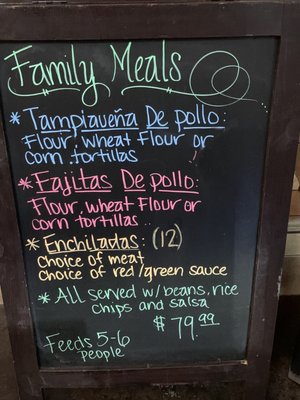 Family Meals
* Tampiqueña De pollo:
Flour, wheat Flour or
corn tortillas
* Fajitas De Pollo:
Flour, wheat Flour or
corn tortillas..
* Enchiladas: (12)
choice of meat
choice of red/green sauce
* All served w/beans, rice
chips and salsa
$79.99
Feeds 5-6
people